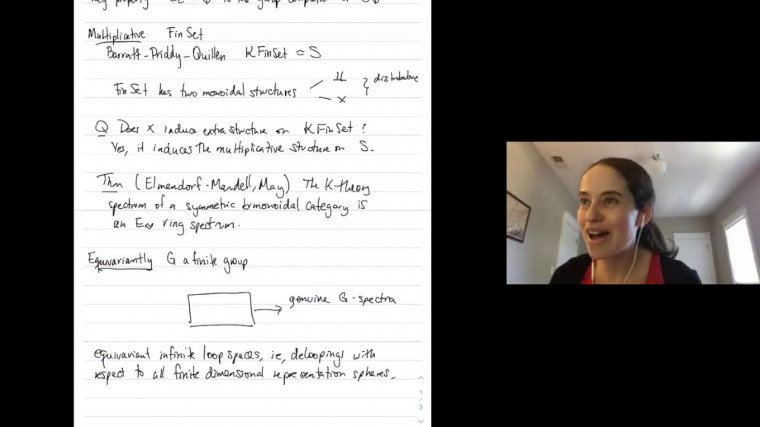 Multiplicative FinSet
Barratt-Priddy-Quillen KFinSet ≃ S
FinSet has two monoidal structures
⨿
×
} distributive
Q Does × induce extra structure on KFinSet?
Yes, it induces the multiplicative structure on S.
Thm (Elmendorf-Mandell, May) The K-theory
spectrum of a symmetric bimonoidal category is
an E∞ ring spectrum.
Equivariantly G a finite group
genuine G-spectra
equivariant infinite loop spaces, ie, deloopings with
respect to all finite dimensional representation spheres.
1
/
3